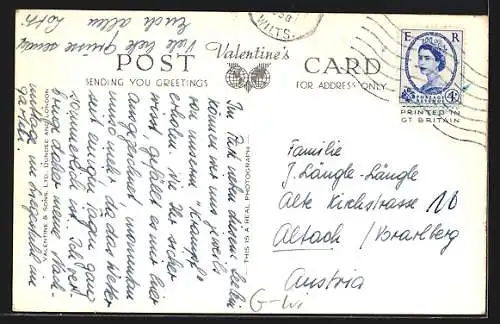 POST Valentine's CARD
SENDING YOU GREETINGS
FOR ADDRESS ONLY
WILTS.
E R
POSTAGE REVENUE
4D
PRINTED IN
GT BRITAIN
VALENTINE & SONS, LTD. DUNDEE AND LONDON
THIS IS A REAL PHOTOGRAPH
Im Park neben diesem Seelein
können wir uns jeweils
von unserem "Krampf"
erholen. Wie Ihr sicher
wisst, gefällt es mir hier
ausgezeichnet momentan
umso mehr, da das Wetter
seit einigen Tagen ganz
sommerlich ist. Ich
daher meine
mittage im Liegestuhl im
garten.
Viele liebe Grüsse sendet
Euch allen
Familie
J. Längle-Längle
Alte Kirchstrasse 10
Altach / Vorarlberg
Austria